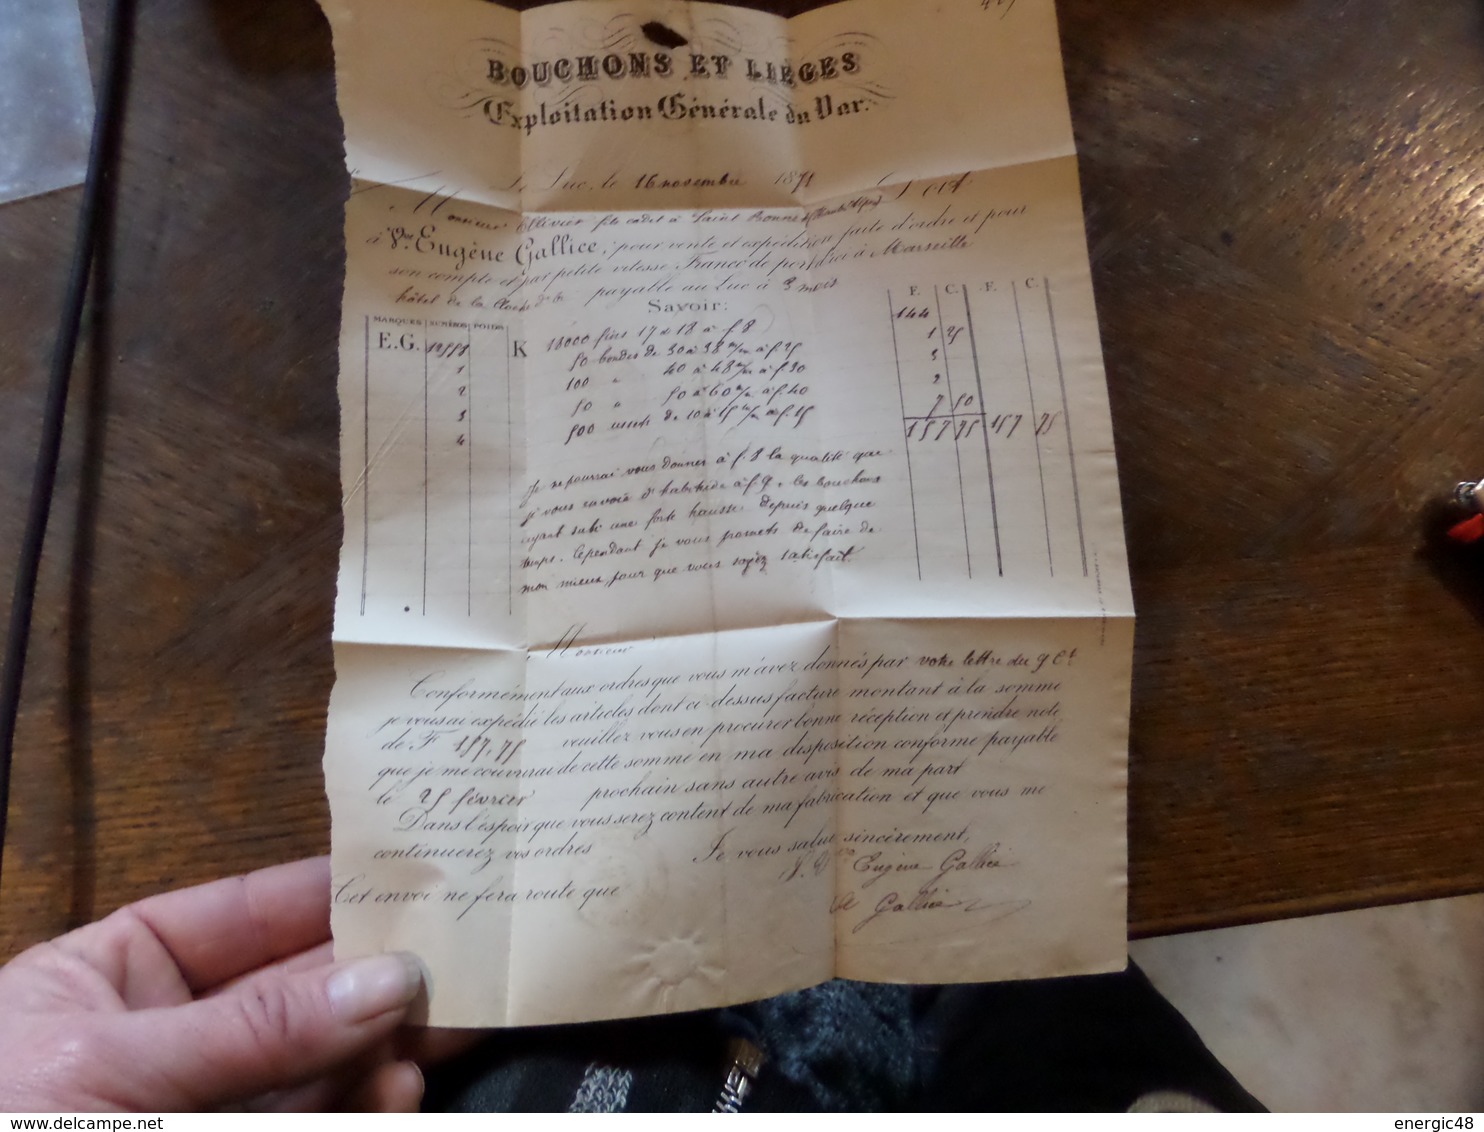 BOUCHONS ET LIÈGES
Exploitation Générale du Var.
Le Luc, le 16 novembre 1871
Monsieur Ollivier fils cadet à Saint Bonnet (Hautes Alpes) Doit
à Vve Eugène Gallice, pour vente et expédition faite d'ordre et pour
son compte et par petite vitesse Franco de port d'ici à Marseille
hôtel de la Cloche d'Or payable au Luc à 3 mois
Savoir:
F. C. F. C.
MARQUES NUMÉROS POIDS
E.G. K 18000 fins 17 x 18 à f 8 144
1 50 bondes de 30 à 38 m/m à f. 25 1 25
2 100 " 40 à 48 m/m à f. 30 3
3 50 " 50 à 60 m/m à f. 40 2
4 500 de 10 à 15 à f. 15 7 50
157 75 157 75
Je ne pourrai vous donner à f. 8 la qualité que
j'vous envoie d'habitude à f 9, les bouchons
ayant subi une forte hausse depuis quelque
temps. Cependant je vous promets de faire de
mon mieux, pour que vous soyez satisfait.
Monsieur
Conformément aux ordres que vous m'avez donnés par votre lettre du 9 Ct
je vous ai expédié les articles dont ci-dessus facture montant à la somme
de F 157,75 veuillez vous en procurer bonne réception et prendre note
que je me couvrirai de cette somme en ma disposition conforme payable
le 25 février prochain sans autre avis de ma part
Dans l'espoir que vous serez content de ma fabrication et que vous me
continuerez vos ordres Je vous salue sincèrement,
Eugène Gallice
Cet envoi ne fera route que
Gallice
energic48